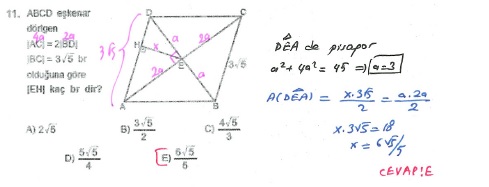 11. ABCD eşkenar
dörtgen
4a 2a
|AC| = 2|BD|
|BC| = 3√5 br
olduğuna göre
|EH| kaç br dir?
D C
H
3√5
x a 2a
E
2a a
3√5
A B
A) 2√5 B) 3√5/2 C) 4√5/3
D) 5√5/4 E) 6√5/5
DEA de pisagor
a² + 4a² = 45 ⇒ a=3
A(DEA) = x.3√5/2 = a.2a/2
x.3√5 = 18
x = 6√5/5
CEVAP:E